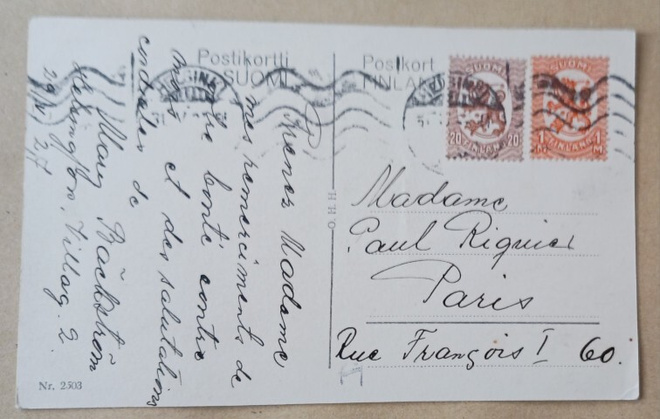 Postikortti
SUOMI
Postkort
FINLAND
SUOMI
20 20
FINLAND
SUOMI
1 1
FINLAND
Prenez Madame
mes remerciments de
bonté contre
moi et des salutations
cordiales de
Mary Bäckström
Helsingfors, Villag. 2
29/V 27
Madame
Paul Riquier
Paris
Rue François I 60.
Nr. 2503